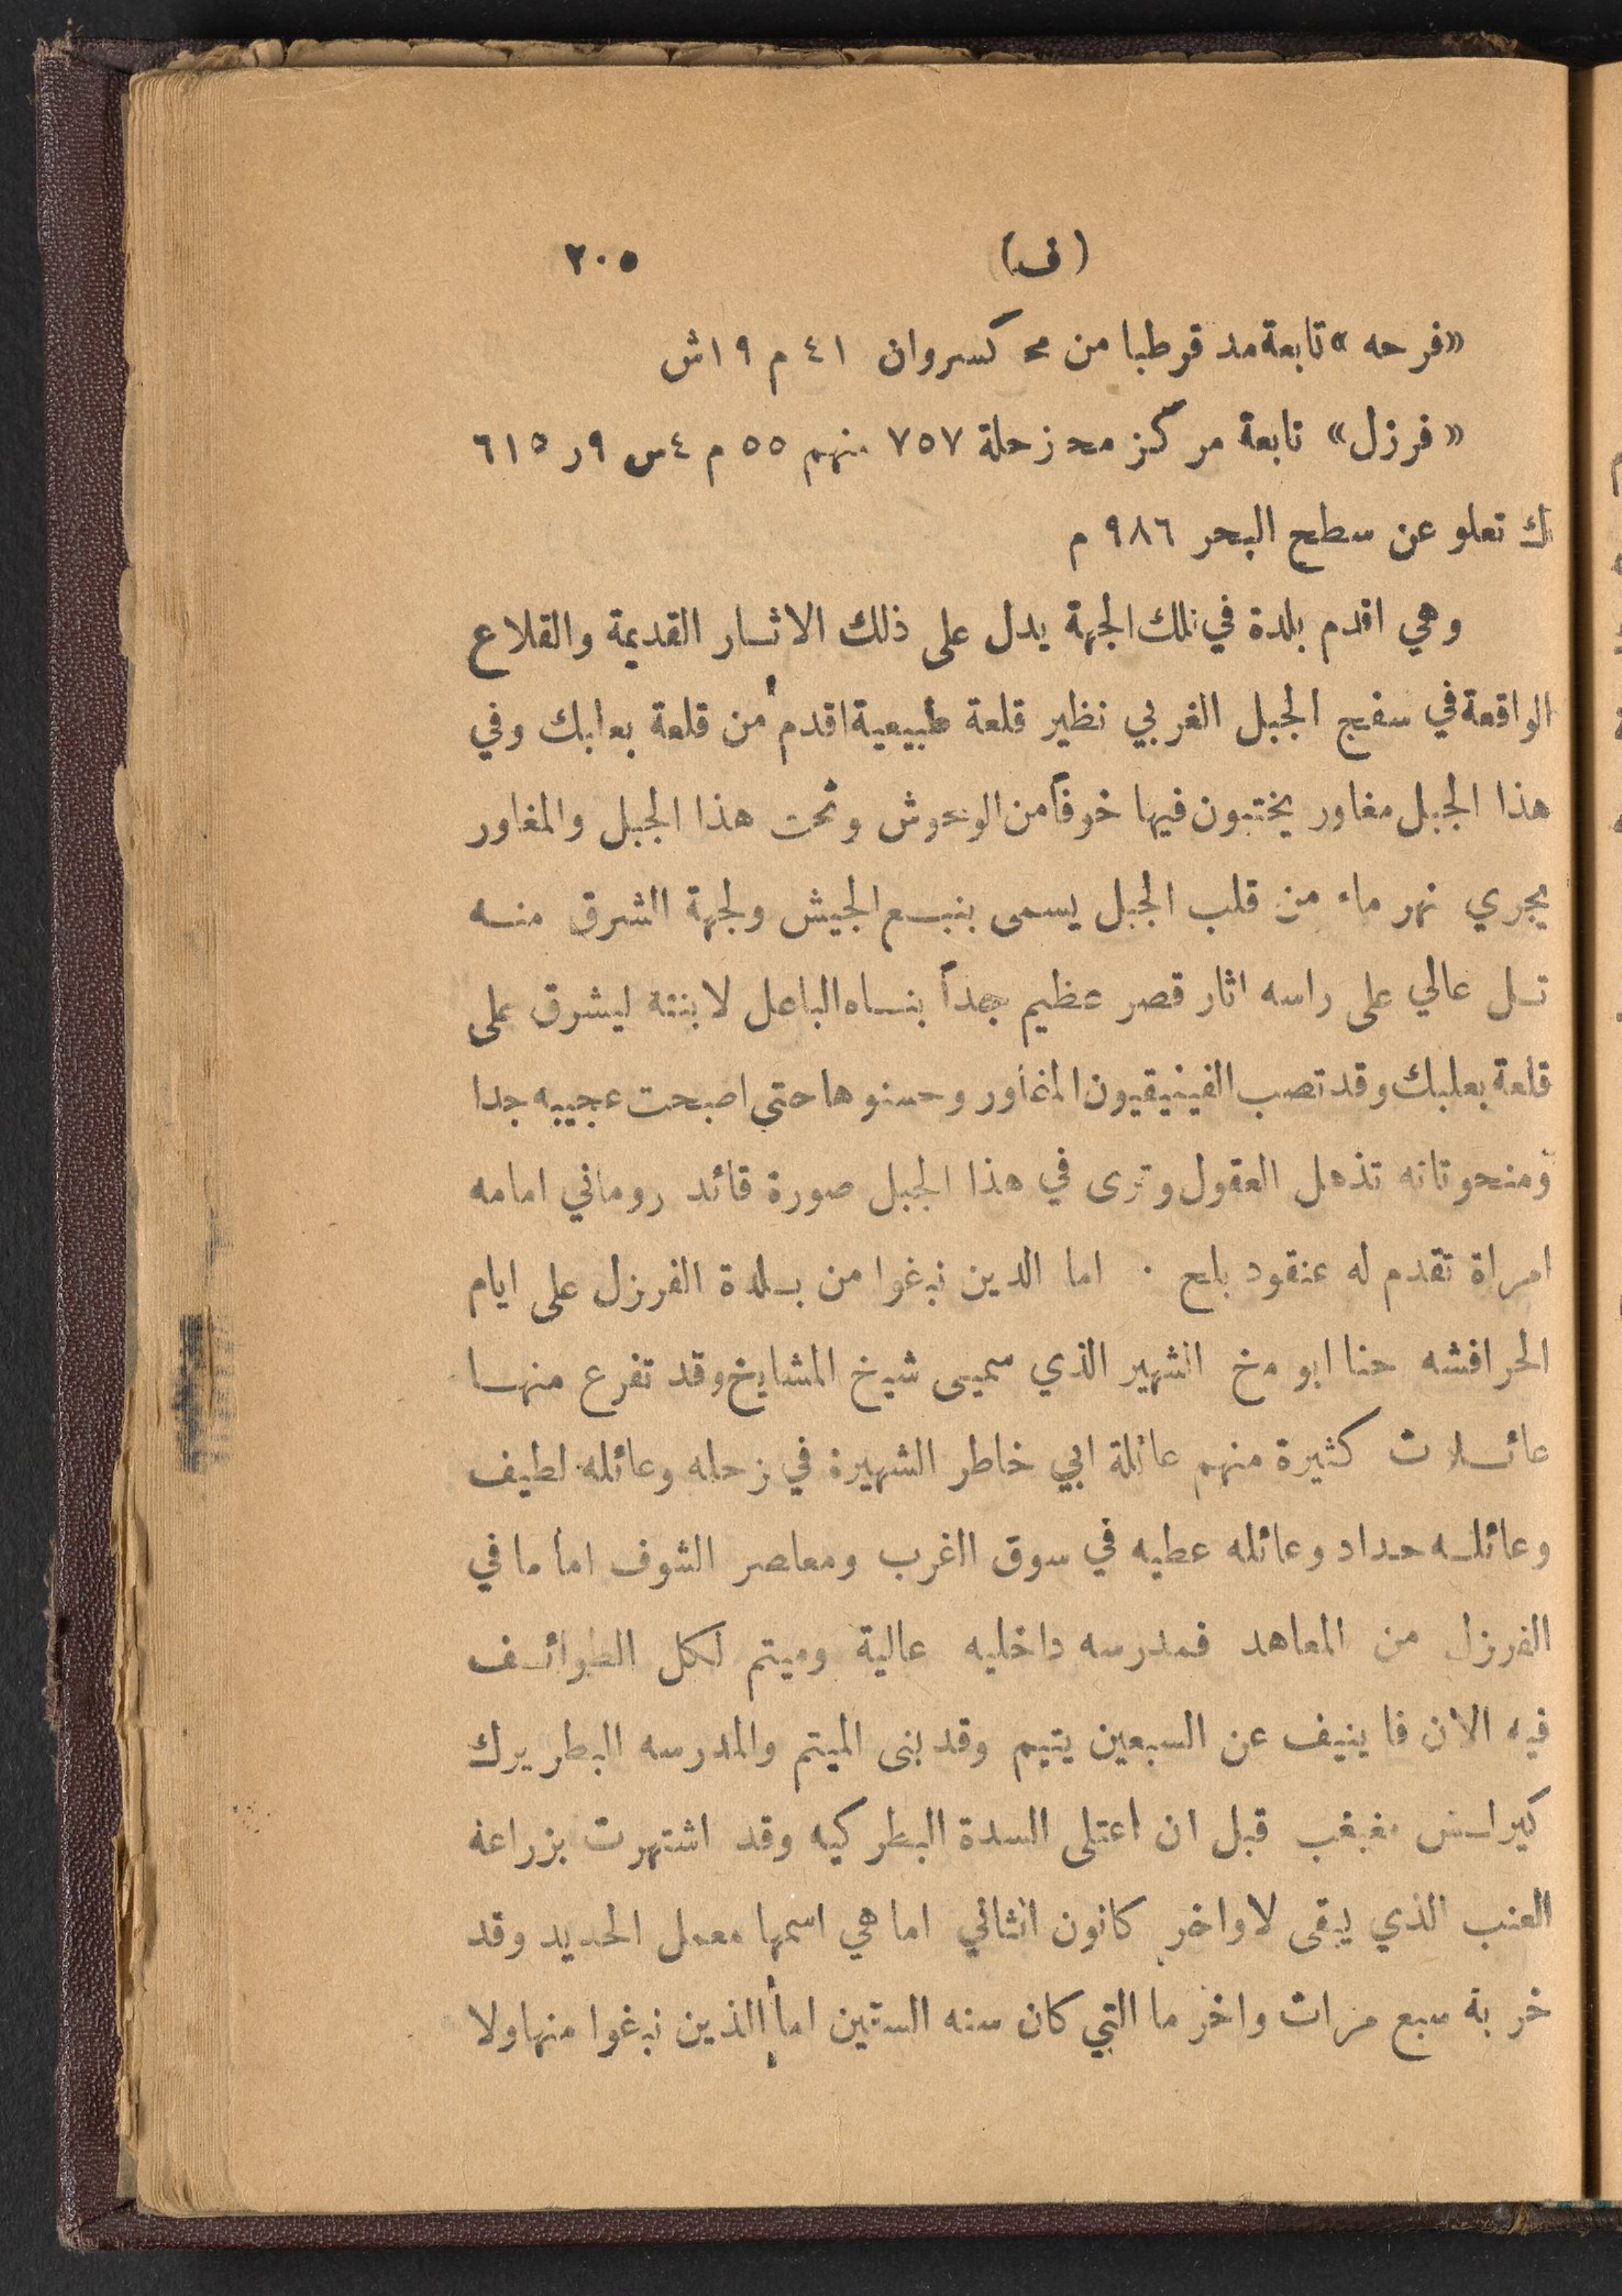 (ف) ٢٠٥
«فرحه» تابعة مد قرطبا من مح كسروان ٤١ م ١٩ش
«فرزل» تابعة مركز مح زحلة ٧٥٧ منهم ٥٥ م ٤س ٩ر ٦١٥
ك تعلو عن سطح البحر ٩٨٦ م
وهي اقدم بلدة في تلك الجهة يدل على ذلك الاثار القديمة والقلاع
الواقعة في سفح الجبل الغربي نظير قلعة طبيعية اقدم من قلعة بعلبك وفي
هذا الجبل مغاور يختبون فيها خوفاً من الوحوش وتحت هذا الجبل والمغاور
يجري نهر ماء من قلب الجبل يسمى بنبع الجيش ولجهة الشرق منه
تل عالي على راسه اثار قصر عظيم جداً بناه الباعل لابنته ليشرق على
قلعة بعلبك وقد تصب الفينيقيون المغاور وحسنوها حتى اصبحت عجيبه جدا
ومنحوتاته تذهل العقول وترى في هذا الجبل صورة قائد روماني امامه
امراة تقدم له عنقود بلح . اما الدين نبغوا من بلدة الفرزل على ايام
الحرافشه حنا ابو مخ الشهير الذي سميى شيخ المشايخ وقد تفرع منها
عائلات كثيرة منهم عائلة ابي خاطر الشهيرة في زحله وعائله لطيف
وعائله حداد وعائله عطيه في سوق الغرب ومعاصر الشوف اما ما في
الفرزل من المعاهد فمدرسه داخليه عالية وميتم لكل الطوائف
فيه الان فا ينيف عن السبعين يتيم وقد بنى الميتم والمدرسه البطريرك
كيرلس مغبغب قبل ان اعتلى السدة البطركيه وقد اشتهرت بزراعة
العنب الذي يبقى لاواخر كانون الثاني اما هي اسمها معمل الحديد وقد
خربة سبع مرات واخر ما التي كان سنه الستين اما الذين نبغوا منها ولا